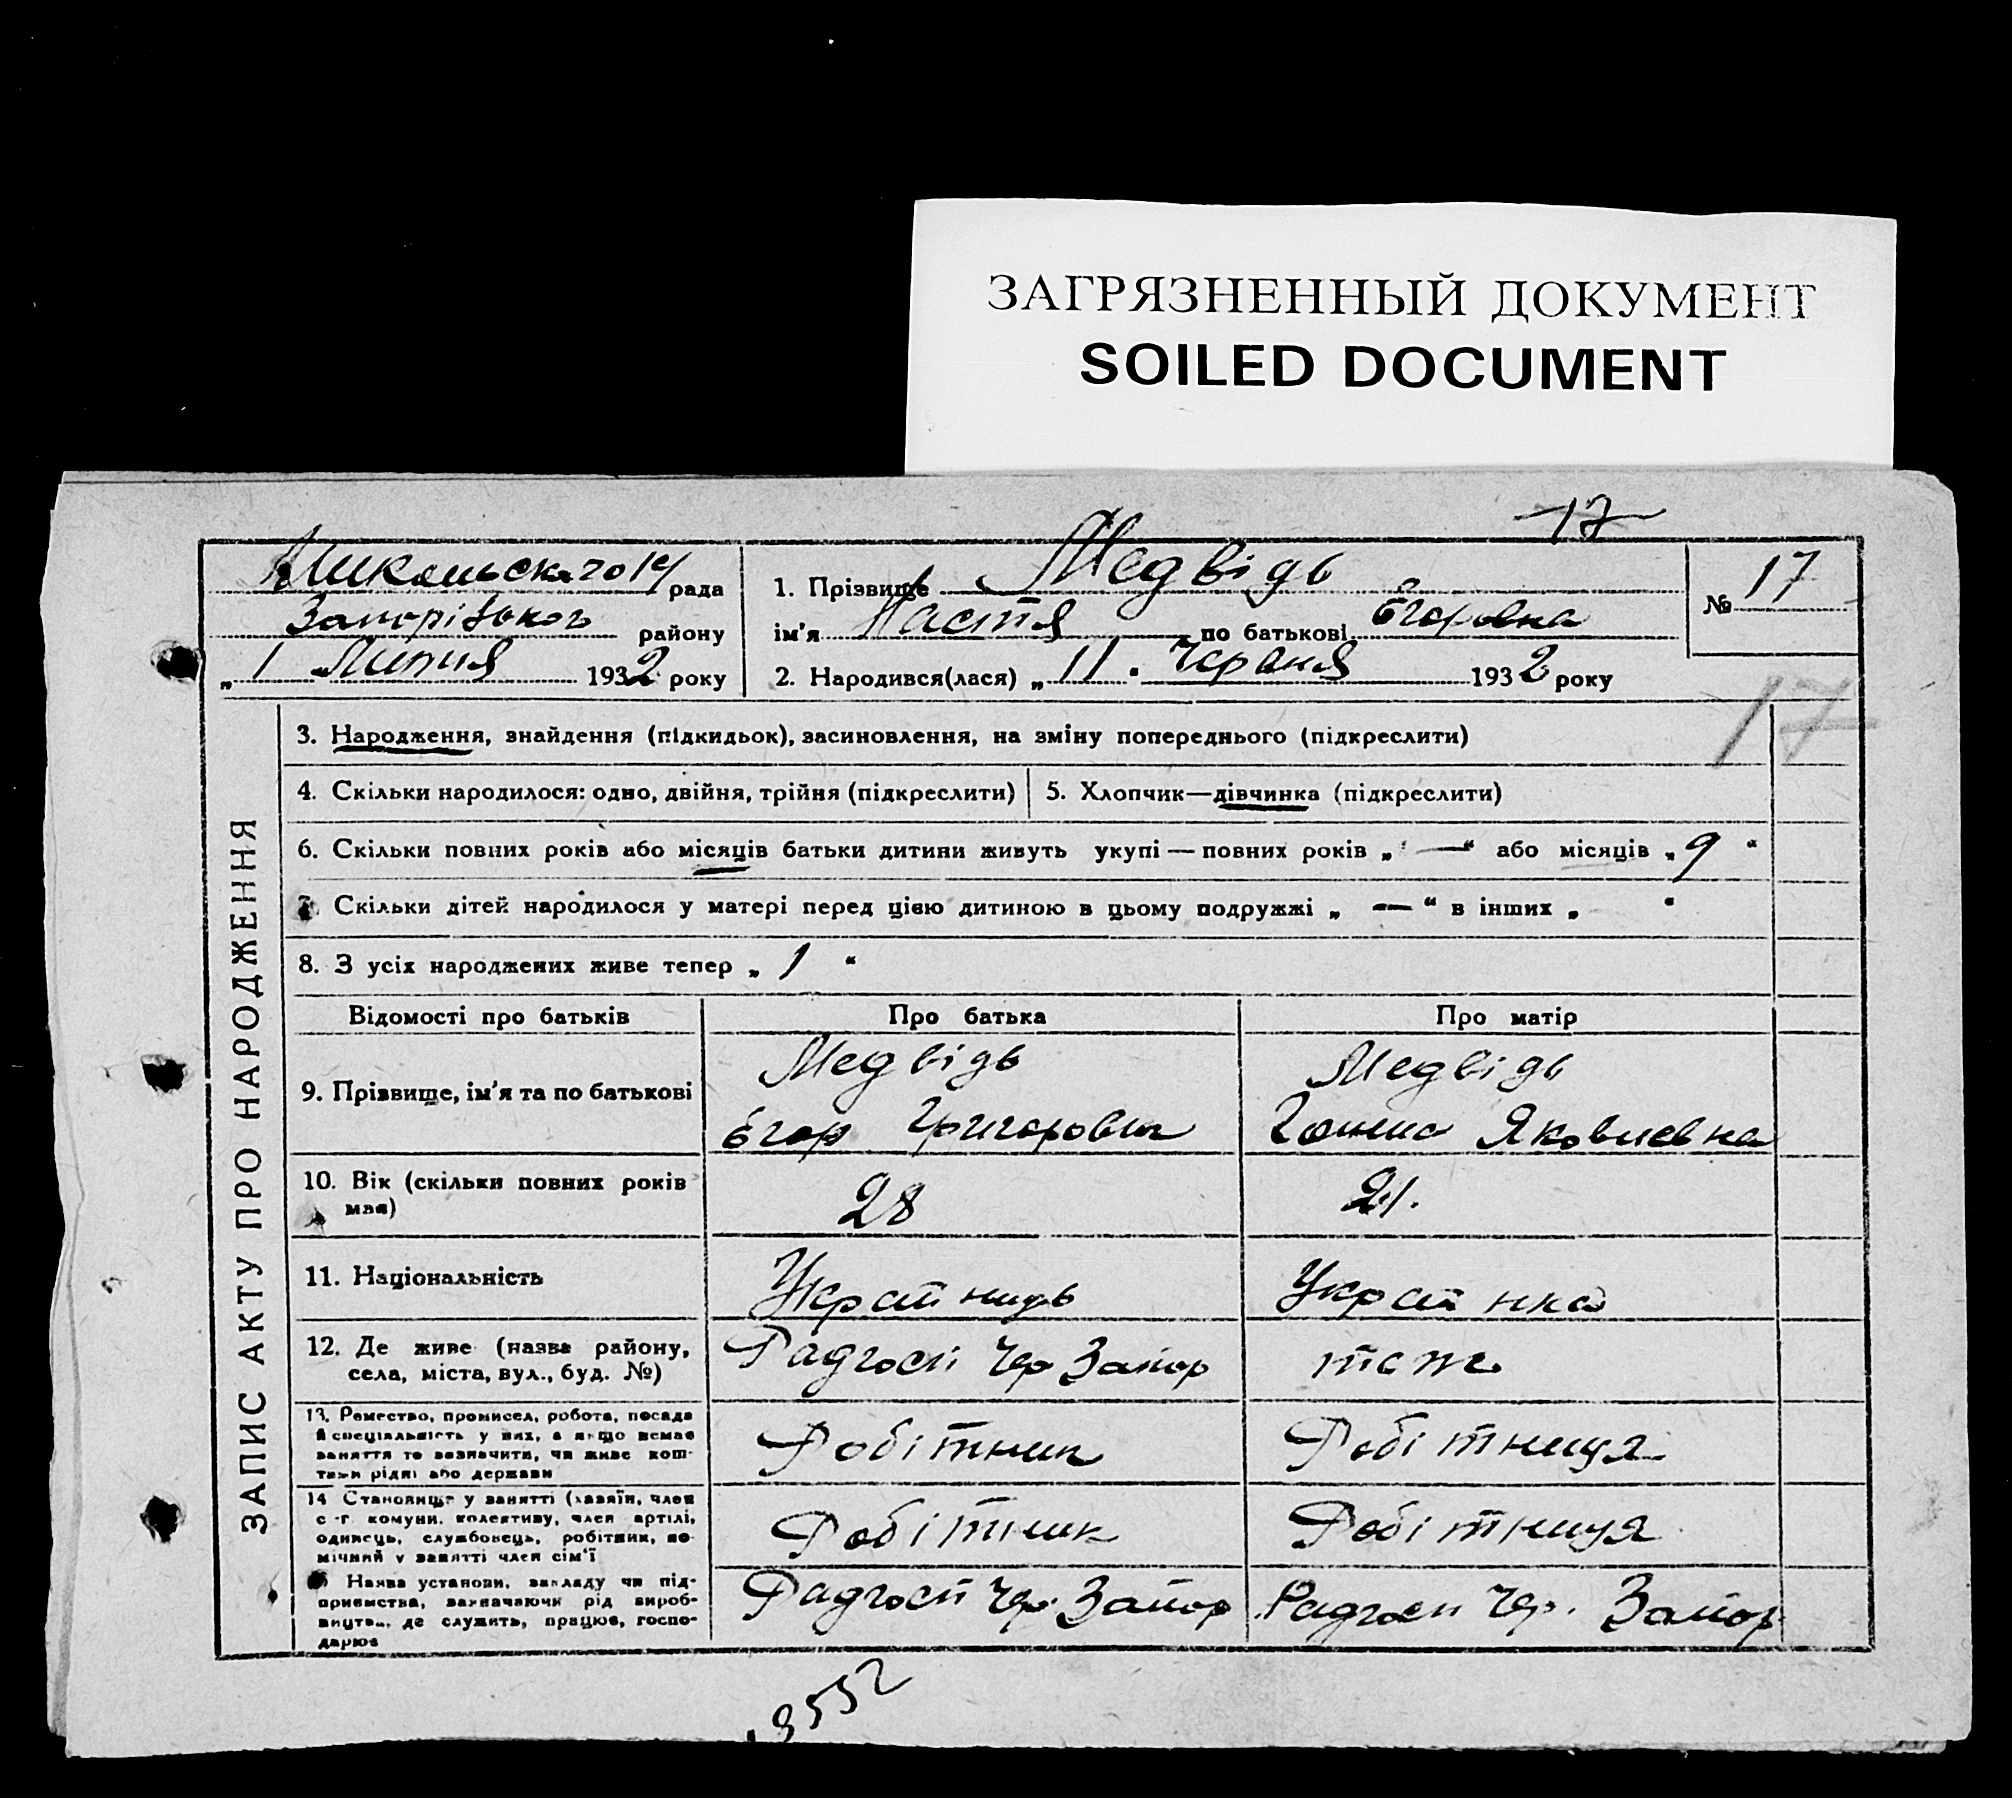 ЗАГРЯЗНЕННЫЙ ДОКУМЕНТ
SOILED DOCUMENT
17
рада
Запорізького району
„ 1 Липня 1932 року
1. Прізвище Медвідь
ім'я Настя по батькові Єгоровна
2. Народився(лася) „ 11. Червня 1932 року
№ 17
17
ЗАПИС АКТУ ПРО НАРОДЖЕННЯ
3. Народження, знайдення (підкидьок), засиновлення, на зміну попереднього (підкреслити)
4. Скільки народилося: одно, двійня, трійня (підкреслити)
5. Хлопчик—дівчинка (підкреслити)
6. Скільки повних років або місяців батьки дитини живуть укупі — повних років „ — “ або місяців „ 9 “
7. Скільки дітей народилося у матері перед цією дитиною в цьому подружжі „ — “ в інших „ “
8. З усіх народжених живе тепер „ 1 “
Відомості про батьків
Про батька
Про матір
9. Прізвище, ім'я та по батькові
Медвідь
Єгор Григорович
Медвідь
Ганна Яковлевна
10. Вік (скільки повних років
має)
28
21.
11. Національність
Українець
Українка
12. Де живе (назва району,
села, міста, вул., буд. №)
Радгосп Чер Запор
тож
13. Ремество, промисел, робота, посада
й спеціальність у них, а якщо немає
заняття то зазначити, чи живе кош-
тами рідні або держави
Робітник
Робітниця
14 Становище у занятті (хазяїн, член
с.-г. комуни, колективу, член артілі,
одинець, службовець, робітник, по-
мічний у занятті член сім'ї
Робітник
Робітниця
Назва установи, закладу чи під-
приємства, зазначаючи рід вироб-
ництва, де служить, працює, госпо-
дарює
Радгосп Чер. Запор
Радгосп Чер. Запор
3552